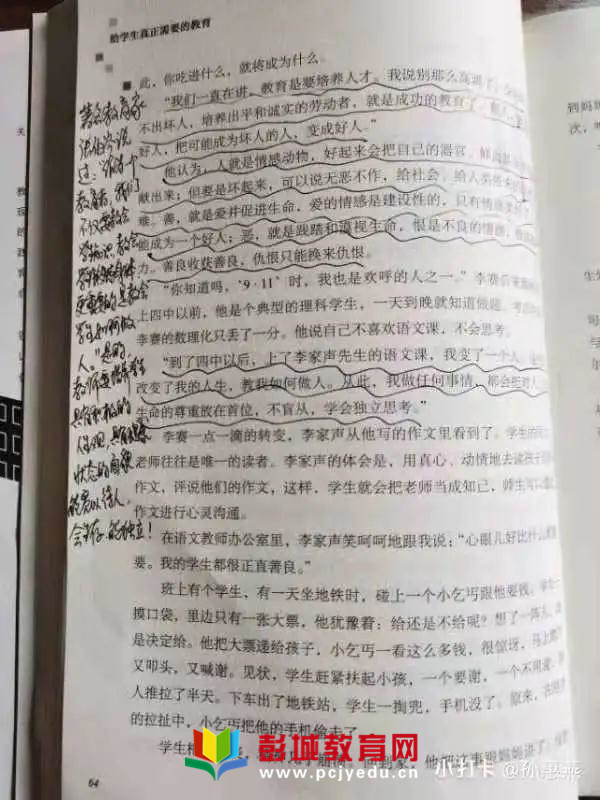 给学生真正需要的教育
此，你吃进什么，就将成为什么。
“我们一直在讲，教育是要培养人才。我说别那么高调了，
不出坏人，培养出平和诚实的劳动者，就是成功的教育了。
好人，把可能成为坏人的人，变成好人。”
他认为，人就是情感动物，好起来会把自己的器官、鲜血
献出来；但要是坏起来，可以说无恶不作，给社会、给人类带来
难。善，就是爱并促进生命，爱的情感是建设性的，只有情感
他成为一个好人；恶，就是践踏和漠视生命，恨是不良的情感，
力。善良收获善良，仇恨只能换来仇恨。
“你知道吗，‘9·11’时，我也是欢呼的人之一。”李赛后来
上四中以前，他是个典型的理科学生，一天到晚就知道做题，考
李赛的数理化只丢了一分。他说自己不喜欢语文课，不会思考。
“到了四中以后，上了李家声先生的语文课，我变了一个人，
改变了我的人生，教我如何做人。从此，我做任何事情，都会把对人
生命的尊重放在首位，不盲从，学会独立思考。”
李赛一点一滴的转变，李家声从他写的作文里看到了。学生的
老师往往是唯一的读者。李家声的体会是，用真心、动情地去读孩子
作文，评说他们的作文，这样，学生就会把老师当成知己，师生可以
作文进行心灵沟通。
在语文教师办公室里，李家声笑呵呵地跟我说：“心眼儿好比什么
要。我的学生都很正直善良。”
班上有个学生，有一天坐地铁时，碰上一个小乞丐跟他要钱。学生一
摸口袋，里边只有一张大票，他犹豫着：给还是不给呢？想了一阵儿，
是决定给。他把大票递给孩子，小乞丐一看这么多钱，很惊讶，马上跪下
又叩头，又喊谢。见状，学生赶紧扶起小孩，一个要谢，一个不用谢，
人推拉了半天。下车出了地铁站，学生一掏兜，手机没了。原来，在
的拉扯中，小乞丐把他的手机偷走了。
学生
回到家，他把这事跟妈妈讲了。
64
著名教育家
说
过：
教育者，我们
不仅要教会
学生知识，教会
更重要的是教会
学生如何做
人。”是的，
教师要培养学生
具有积极的
状态的自我，
能宽以待人，
会生存，能独立！
到妈妈
次，
彭城教育网
www.pcjyedu.cn
小打卡@孙慧燕